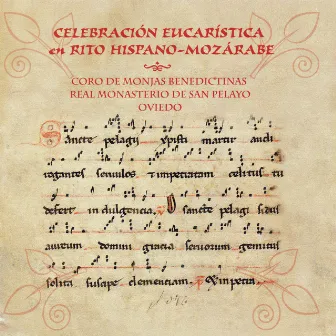 CELEBRACIÓN EUCARÍSTICA
en RITO HISPANO-MOZÁRABE
CORO DE MONJAS BENEDICTINAS
REAL MONASTERIO DE SAN PELAYO
OVIEDO
Sancte pelagii xpisti martir audi
rogantes seruulos et impetratam celitus tu
defert indulgencia. O sancte pelagi sidus
aureum domini gracia seruorum gemitus
solita suscipe clemenciam. Et impetra